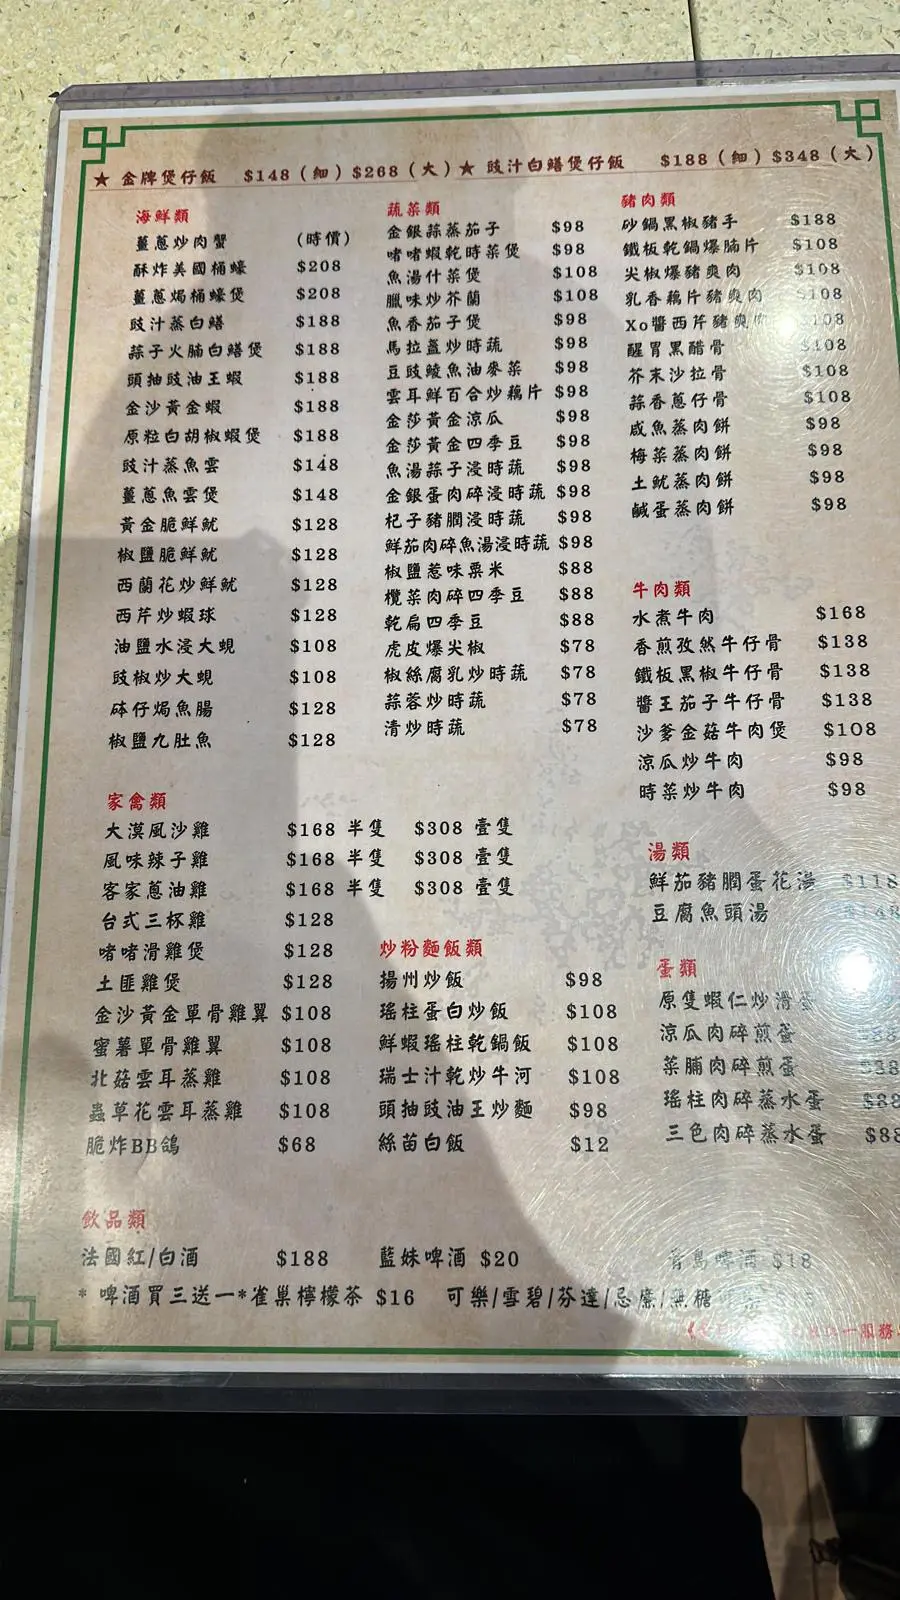 ★ 金牌煲仔飯 $148（細）$268（大）★ 豉汁白鱔煲仔飯 $188（細）$348（大）
海鮮類
薑蔥炒肉蟹 （時價）
酥炸美國桶蠔 $208
薑蔥焗桶蠔煲 $208
豉汁蒸白鱔 $188
蒜子火腩白鱔煲 $188
頭抽豉油王蝦 $188
金沙黃金蝦 $188
原粒白胡椒蝦煲 $188
豉汁蒸魚雲 $148
薑蔥魚雲煲 $148
黃金脆鮮魷 $128
椒鹽脆鮮魷 $128
西蘭花炒鮮魷 $128
西芹炒蝦球 $128
油鹽水浸大蜆 $108
豉椒炒大蜆 $108
砵仔焗魚腸 $128
椒鹽九肚魚 $128
蔬菜類
金銀蒜蒸茄子 $98
啫啫蝦乾時菜煲 $98
魚湯什菜煲 $108
臘味炒芥蘭 $108
魚香茄子煲 $98
馬拉盞炒時蔬 $98
豆豉鯪魚油麥菜 $98
雲耳鮮百合炒藕片 $98
金莎黃金涼瓜 $98
金莎黃金四季豆 $98
魚湯蒜子浸時蔬 $98
金銀蛋肉碎浸時蔬 $98
杞子豬膶浸時蔬 $98
鮮茄肉碎魚湯浸時蔬 $98
椒鹽惹味粟米 $88
欖菜肉碎四季豆 $88
乾扁四季豆 $88
虎皮爆尖椒 $78
椒絲腐乳炒時蔬 $78
蒜蓉炒時蔬 $78
清炒時蔬 $78
豬肉類
砂鍋黑椒豬手 $188
鐵板乾鍋爆腩片 $108
尖椒爆豬爽肉 $108
乳香藕片豬爽肉 $108
Xo醬西芹豬爽肉 $108
醒胃黑醋骨 $108
芥末沙拉骨 $108
蒜香蔥仔骨 $108
咸魚蒸肉餅 $98
梅菜蒸肉餅 $98
土魷蒸肉餅 $98
鹹蛋蒸肉餅 $98
牛肉類
水煮牛肉 $168
香煎孜然牛仔骨 $138
鐵板黑椒牛仔骨 $138
醬王茄子牛仔骨 $138
沙爹金菇牛肉煲 $108
涼瓜炒牛肉 $98
時菜炒牛肉 $98
家禽類
大漠風沙雞 $168 半隻 $308 壹隻
風味辣子雞 $168 半隻 $308 壹隻
客家蔥油雞 $168 半隻 $308 壹隻
台式三杯雞 $128
啫啫滑雞煲 $128
土匪雞煲 $128
金沙黃金單骨雞翼 $108
蜜薯單骨雞翼 $108
北菇雲耳蒸雞 $108
蟲草花雲耳蒸雞 $108
脆炸BB鴿 $68
炒粉麵飯類
揚州炒飯 $98
瑤柱蛋白炒飯 $108
鮮蝦瑤柱乾鍋飯 $108
瑞士汁乾炒牛河 $108
頭抽豉油王炒麵 $98
絲苗白飯 $12
湯類
鮮茄豬膶蛋花湯 $118
豆腐魚頭湯
蛋類
原隻蝦仁炒滑蛋
涼瓜肉碎煎蛋
菜脯肉碎煎蛋
瑤柱肉碎蒸水蛋 $88
三色肉碎蒸水蛋 $88
飲品類
法國紅/白酒 $188 藍妹啤酒 $20 青島啤酒 $18
* 啤酒買三送一*雀巢檸檬茶 $16 可樂/雪碧/芬達/忌廉/無糖
一服務